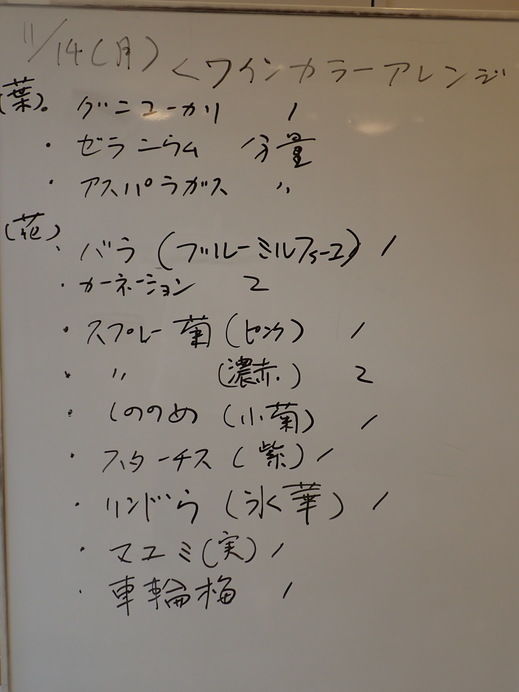 11/14(月) <ワインカラーアレンジ
(葉)。グニユーカリ 1
・ゼラニウム 分量
・アスパラガス 〃
(花)、バラ(ブルーミルフィーユ) 1
・カーネーション 2
・スプレー菊(ピンク) 1
・〃 (濃赤) 2
・しののめ(小菊) 1
・スターチス(紫) 1
・リンドウ(氷華) 1
・マユミ(実) 1
・車輪梅 1